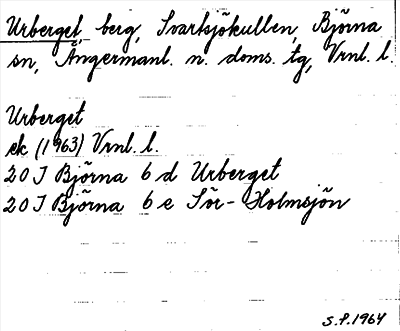 Urberget, berg, Svartsjökullen, Björna
sn, Ångermanl. n. doms. tg, Vrnl. l.
Urberget
ek (1963) Vrnl. l.
20 J Björna 6 d Urberget
20 J Björna 6 e Sör-Holmsjön
S.P. 1964